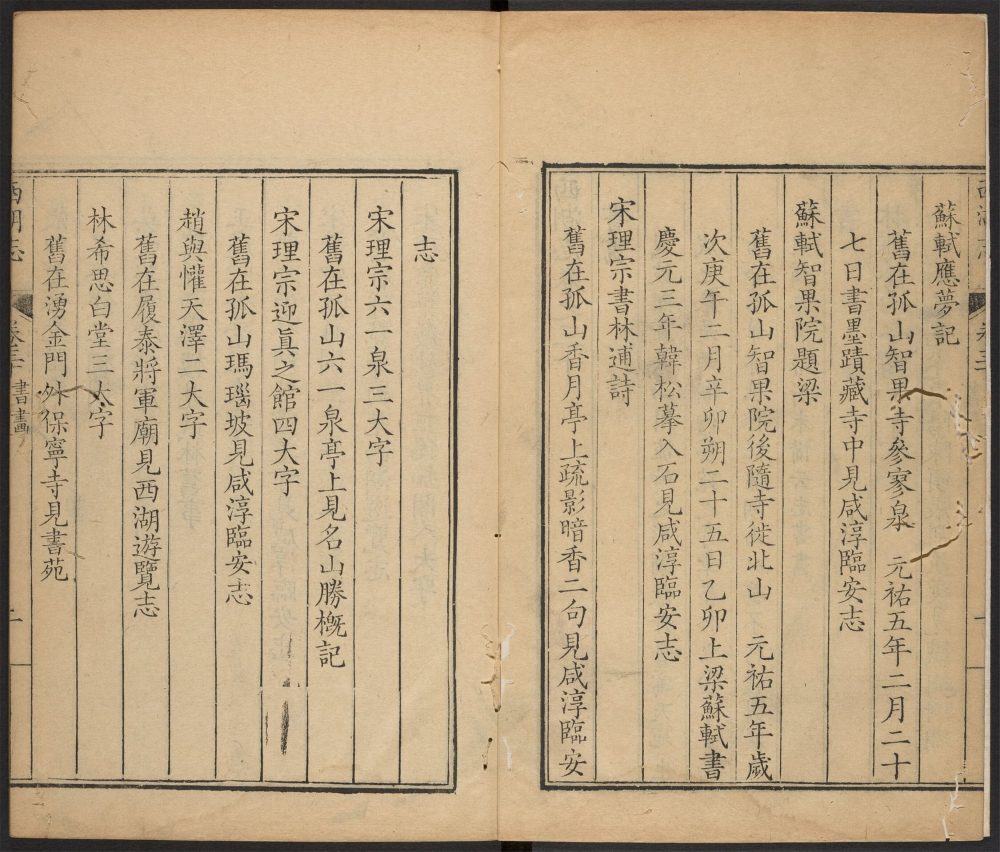 蘇軾應夢記
舊在孤山智果寺參寥泉 元祐五年二月二十
七日書墨蹟藏寺中見咸淳臨安志
蘇軾智果院題梁
舊在孤山智果院後隨寺徙北山 元祐五年歲
次庚午二月辛卯朔二十五日乙卯上梁蘇軾書
慶元三年韓松摹入石見咸淳臨安志
宋理宗書林逋詩
舊在孤山香月亭上疏影暗香二句見咸淳臨安
志
宋理宗六一泉三大字
舊在孤山六一泉亭上見名山勝概記
宋理宗迎眞之館四大字
舊在孤山瑪瑙坡見咸淳臨安志
趙與懽天澤二大字
舊在履泰將軍廟見西湖遊覽志
林希思白堂三大字
舊在湧金門外保寧寺見書苑
西湖志 卷三十 書畫